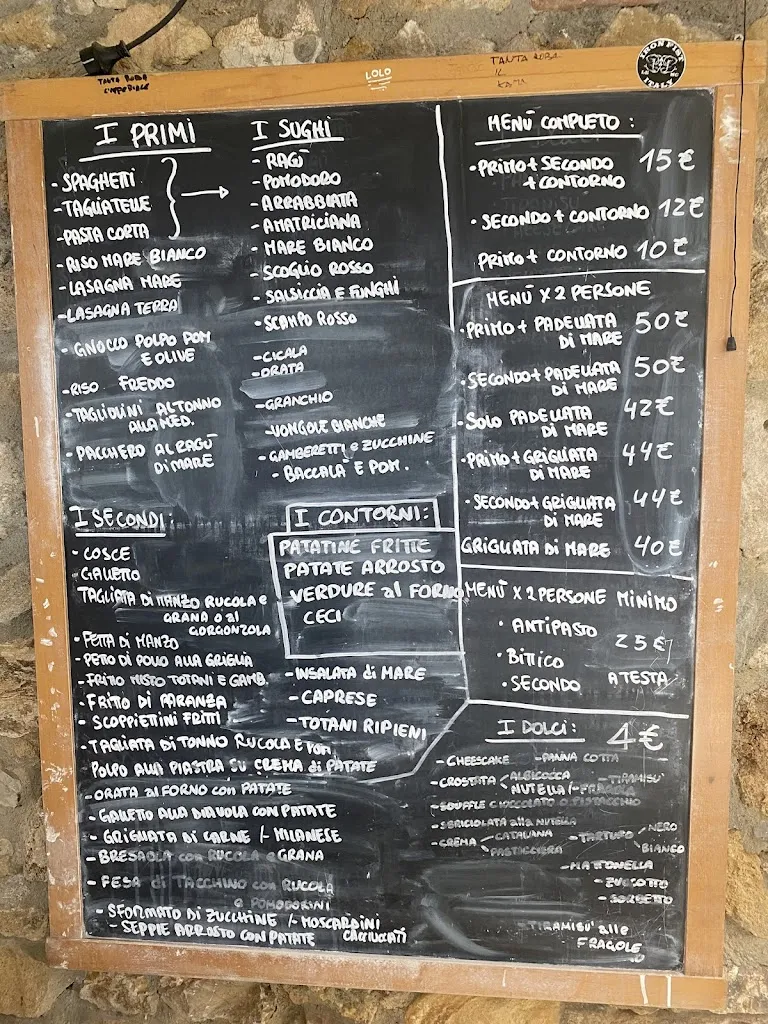 TANTA ROBA
L'IMPERIALE
LOLO
TANTA ROBA
IL
IRON FIST
ITALY
I PRIMI
- SPAGHETTI
- TAGLIATELLE
- PASTA CORTA
- RISO MARE BIANCO
- LASAGNA MARE
- LASAGNA TERRA
- GNOCCO POLPO POM
E OLIVE
- RISO FREDDO
- TAGLIOLINI AL TONNO
ALLA MED.
- PACCHERO AL RAGÙ
DI MARE
I SUGHI
- RAGÙ
- POMODORO
- ARRABBIATA
- AMATRICIANA
- MARE BIANCO
- SCOGLIO ROSSO
- SALSICCIA E FUNGHI
- SCAMPO ROSSO
- CICALA
- ORATA
- GRANCHIO
- VONGOLE BIANCHE
- GAMBERETTI e ZUCCHINE
- BACCALÀ E POM.
MENÙ COMPLETO :
• PRIMO + SECONDO
+ CONTORNO 15 €
• SECONDO + CONTORNO 12 €
PRIMO + CONTORNO 10 €
MENÙ X 2 PERSONE
• PRIMO + PADELLATA
DI MARE 50 €
• SECONDO + PADELLATA
DI MARE 50 €
• SOLO PADELLATA
DI MARE 42 €
• PRIMO + GRIGLIATA
DI MARE 44 €
• SECONDO + GRIGLIATA
DI MARE 44 €
GRIGLIATA DI MARE 40 €
MENÙ X 2 PERSONE MINIMO
• ANTIPASTO
• BITTICO
• SECONDO
25 €
A TESTA
I SECONDI:
- COSCE
- GALLETTO
TAGLIATA DI MANZO RUCOLA e
GRANA O al
GORGONZOLA
- FETTA DI MANZO
- PETTO DI POLLO ALLA GRIGLIA
- FRITTO MISTO TOTANI E GAMB.
- FRITTO DI PARANZA
- SCOPPIETTINI FRITTI
- TAGLIATA DI TONNO RUCOLA E POM.
- POLPO ALLA PIASTRA SU CREMA di PATATE
- ORATA al FORNO con PATATE
- GALLETTO ALLA DIAVOLA CON PATATE
- GRIGLIATA DI CARNE /- MILANESE
- BRESAOLA con RUCOLA e GRANA
- FESA di TACCHINO con RUCOLA
e POMODORINI
- SFORMATO DI ZUCCHINE /- MOSCARDINI
CACCIUCCATI
- SEPPIE ARROSTO CON PATATE
I CONTORNI:
PATATINE FRITTE
PATATE ARROSTO
VERDURE al FORNO
CECI
- INSALATA di MARE
- CAPRESE
- TOTANI RIPIENI
I DOLCI: 4 €
- CHEESCAKE - PANNA COTTA
- CROSTATA ALBICOCCA
NUTELLA /- FRAGOLA
- TIRAMISU'
- SOUFFLE CIOCCOLATO O PISTACCHIO
- SBRICIOLATA alla NUTELLA
- CREMA CATALANA
PASTICCIERA
- TARTUFO NERO
BIANCO
- MATTONELLA
- ZUCCOTTO
- SORBETTO
- TIRAMISU' alle
FRAGOLE